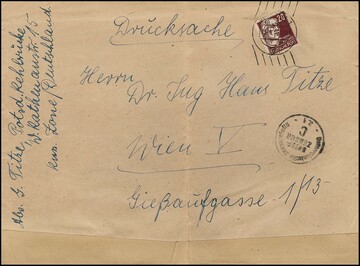 Drucksache
Herrn
Dr. Ing Hans Titze
Wien V
Gießaufgasse 1/13
Abs. J. Titze, Potsd. Rehbrücke
Rathenaustr. 15
russ. Zone/Deutschland
20
C
21